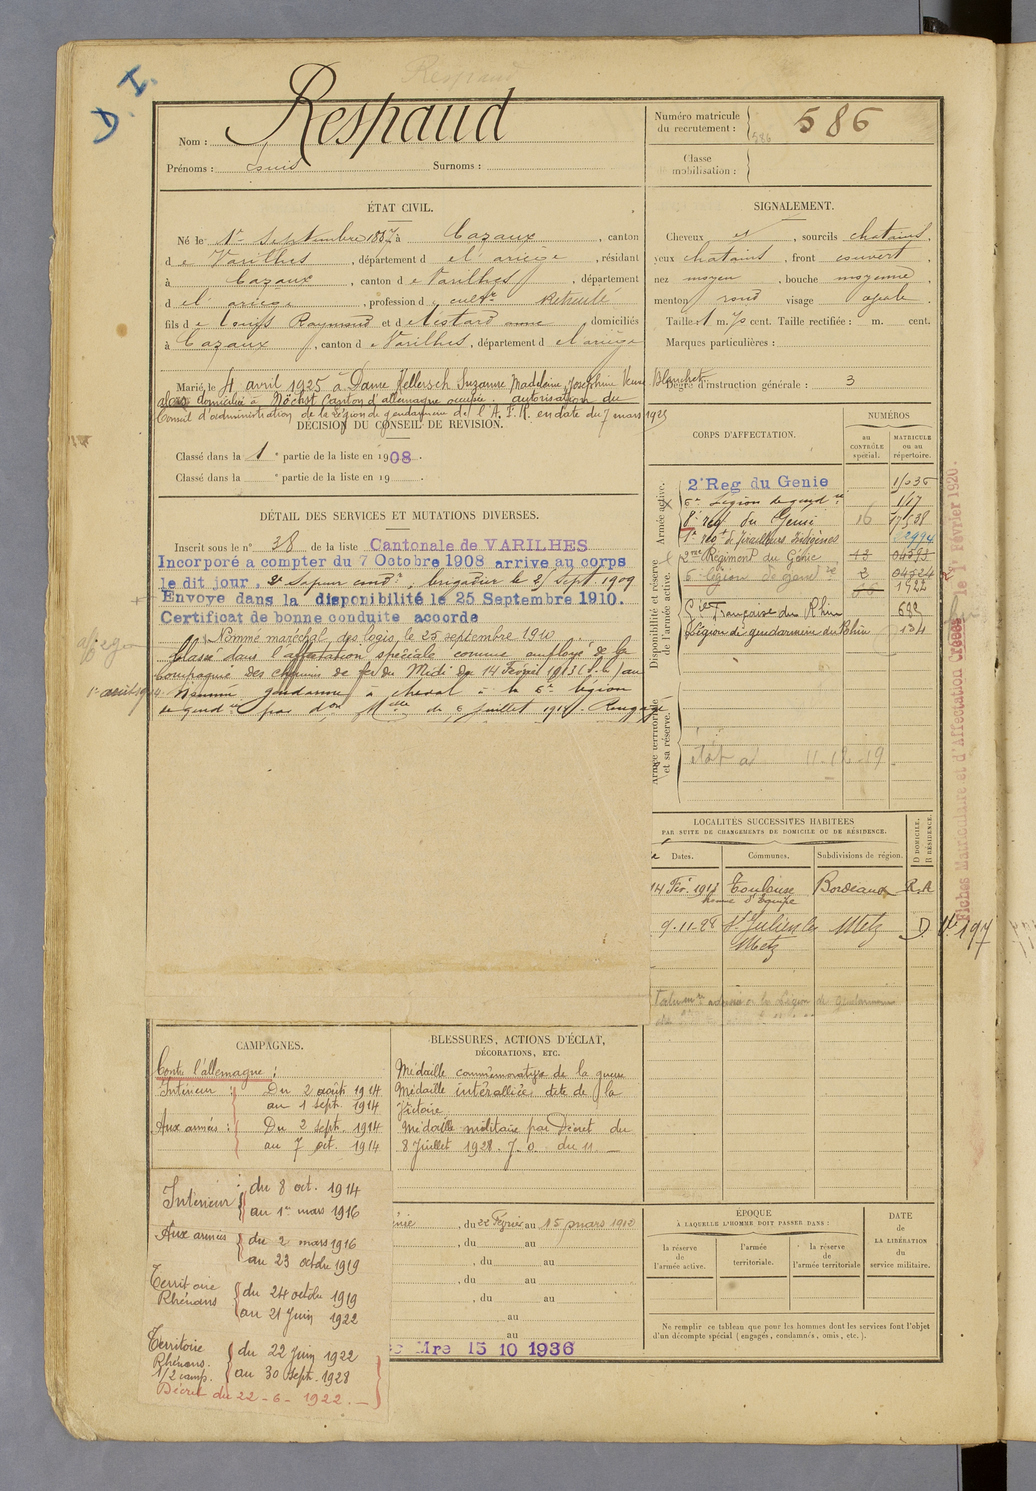 Respaud
D. I.
Nom : Respaud
Prénoms : Louis Surnoms :
Numéro matricule du recrutement : 586
586
Classe mobilisation :
ÉTAT CIVIL.
Né le 1er Septembre 1887 à Cazaux, canton
de Varilhes, département de l'ariège, résidant
à Cazaux, canton de Varilhes, département
de l'ariège, profession de cultr
fils de Louis Raymond et de anne, domiciliés
à Cazaux, canton de Varilhes, département de l'ariège
Marié, le 4 avril 1925 à Dame Hellersch Suzanne Madeleine Joséphine Veuve Blanchet
domiciliée à Höchst Canton d'allemagne occupée. autorisation du
Conseil d'administration de la Légion de gendarmerie de l'A.F.R. en date du 7 mars 1925
DÉCISION DU CONSEIL DE REVISION.
Classé dans la 1 e partie de la liste en 1908.
Classé dans la e partie de la liste en 19 .
DÉTAIL DES SERVICES ET MUTATIONS DIVERSES.
Inscrit sous le n° 38 de la liste Cantonale de VARILHES
Incorporé a compter du 7 Octobre 1908 arrive au corps
le dit jour, 2e Sapeur condr, brigadier le 25 Sept 1909
Envoye dans la disponibilité le 25 Septembre 1910.
Certificat de bonne conduite accorde
Nommé maréchal des logis le 25 septembre 1910
Classé dans l'affectation spéciale comme employé de la
Compagnie des chemins de fer du Midi du 14 Février 1913 (S.A.) au
1er août 1914. Nommé gendarme à cheval à la 6e légion
de gendrie par don Mlle du 6 juillet 1914. Rengagé
SIGNALEMENT.
Cheveux et, sourcils chatains,
yeux chatains, front couvert,
nez moyen, bouche moyenne
menton rond visage ovale.
Taille: 1 m. 70 cent. Taille rectifiée : m. cent.
Marques particulières :
Degré d'instruction générale : 3
CORPS D'AFFECTATION.
NUMÉROS
au CONTRÔLE spécial.
MATRICULE ou au répertoire.
Armée active.
2e Reg du Genie
6e Légion de gendrie 167
8e reg du Génie 16 17538
1er régt de Tirailleurs Indigènes
Disponibilité et réserve de l'armée active.
2me Régiment du Génie 13
6e légion de gendrie 2
1922
Cie Française du Rhin 692
Légion de gendarmerie du Rhin 134
Armée territoriale et sa réserve.
état al 11-12-19
Fiches Matriculaire et d'Affectation Créées le 1er Février 1920.
LOCALITÉS SUCCESSIVES HABITÉES
PAR SUITE DE CHANGEMENTS DE DOMICILE OU DE RÉSIDENCE.
Dates. Communes. Subdivisions de région. D DOMICILE, R RÉSIDENCE.
14 Fév. 1913 Toulouse Bordeaux R.
9-11-28 St Julien les Metz Metz D. Vu 197
CAMPAGNES.
Contre l'allemagne :
Intérieur : Du 2 août 1914
au 1 sept. 1914
Aux armées : Du 2 sept. 1914
au 7 oct. 1914
Intérieur : du 8 oct. 1914
au 1er mars 1916
Aux armées du 2 mars 1916
au 23 octobre 1919
Territoire Rhénans du 24 octobre 1919
au 21 Juin 1922
Territoire Rhénans. 1/2 camp. du 22 Juin 1922
au 30 Sept. 1928
Décret du 22-6-1922.
BLESSURES, ACTIONS D'ÉCLAT,
DÉCORATIONS, ETC.
Médaille commémorative de la guerre
Médaille interalliée dite de la
Victoire.
Médaille militaire par Décret du
8 Juillet 1928. J.O. du 11
, du 22 Février au 15 mars 1912
, du au
, du au
, du au
, du au
au
au
Mre 15 10 1936
ÉPOQUE
À LAQUELLE L'HOMME DOIT PASSER DANS :
la réserve de l'armée active.
l'armée territoriale.
la réserve de l'armée territoriale
DATE de LA LIBÉRATION du service militaire.
Ne remplir ce tableau que pour les hommes dont les services font l'objet
d'un décompte spécial (engagés, condamnés, omis, etc.).